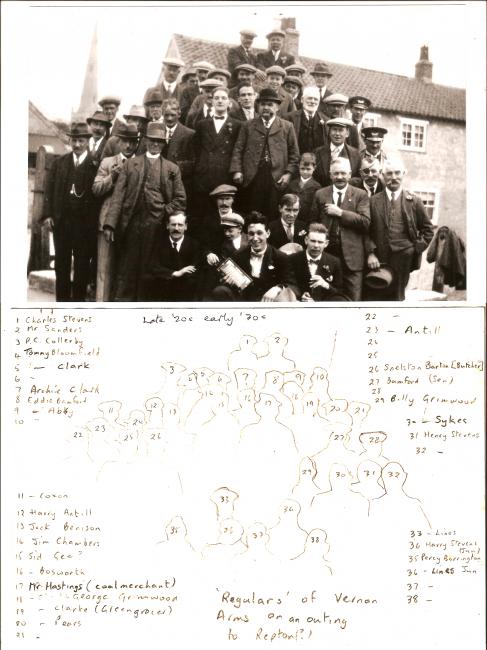 Late '20s early '30s
1 Charles Stevens
2 Mr Sanders
3 P.C. Collerby
4 Tommy Bloomfield
5 - Clark
6 -
7 Archie Clark
8 Eddie Bamford
9 - Abby
10 -
22 -
23 - Antill
24
25
26 Snelston Barton (Butcher)
27 Bamford (Sen)
28
29 Billy Grimwood
30 - Sykes
31 Henry Stevens
32 -
1 2
3
7 8 9 10
11 12 13
22 23 24 25 26
20 21
27 28
29 30 31 32
33
34
35 36 37 38
11 - Coxon
12 Harry Antill
13 Jack Benison
14 Jim Chambers
15 Sid Gee?
16 - Bosworth
17 Mr Hastings (coalmerchant)
18 George Grimwood
19 - Clarke (Greengrocer)
20 - Pears
21 -
33 - Lines
34 Harry Stevens (Jun)
35 Percy Barrington
36 - Lines Jun
37 -
38 -
'Regulars' of Vernon
Arms on an outing
to Repton?!